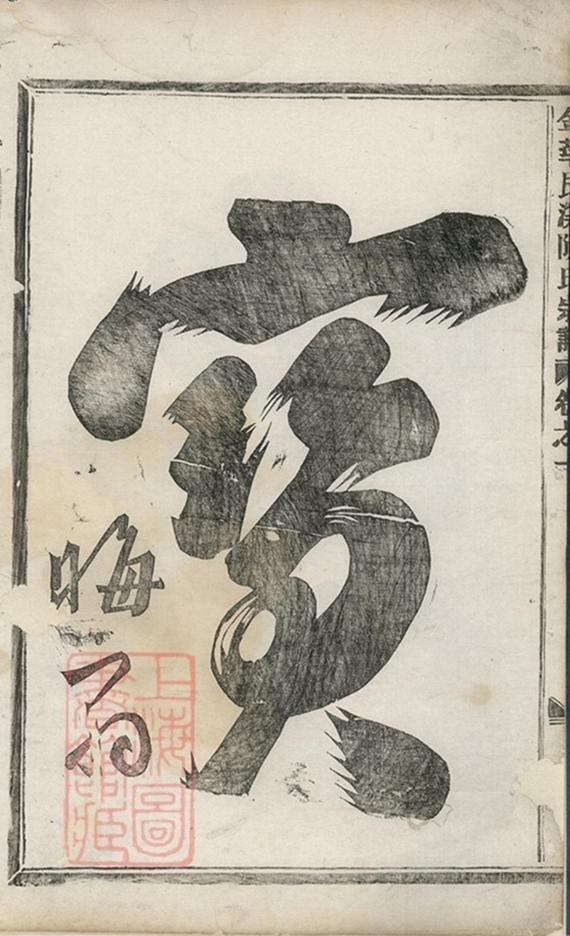 金華
溪陳氏宗譜
卷之一
寶
晦翁
上海圖
書館藏